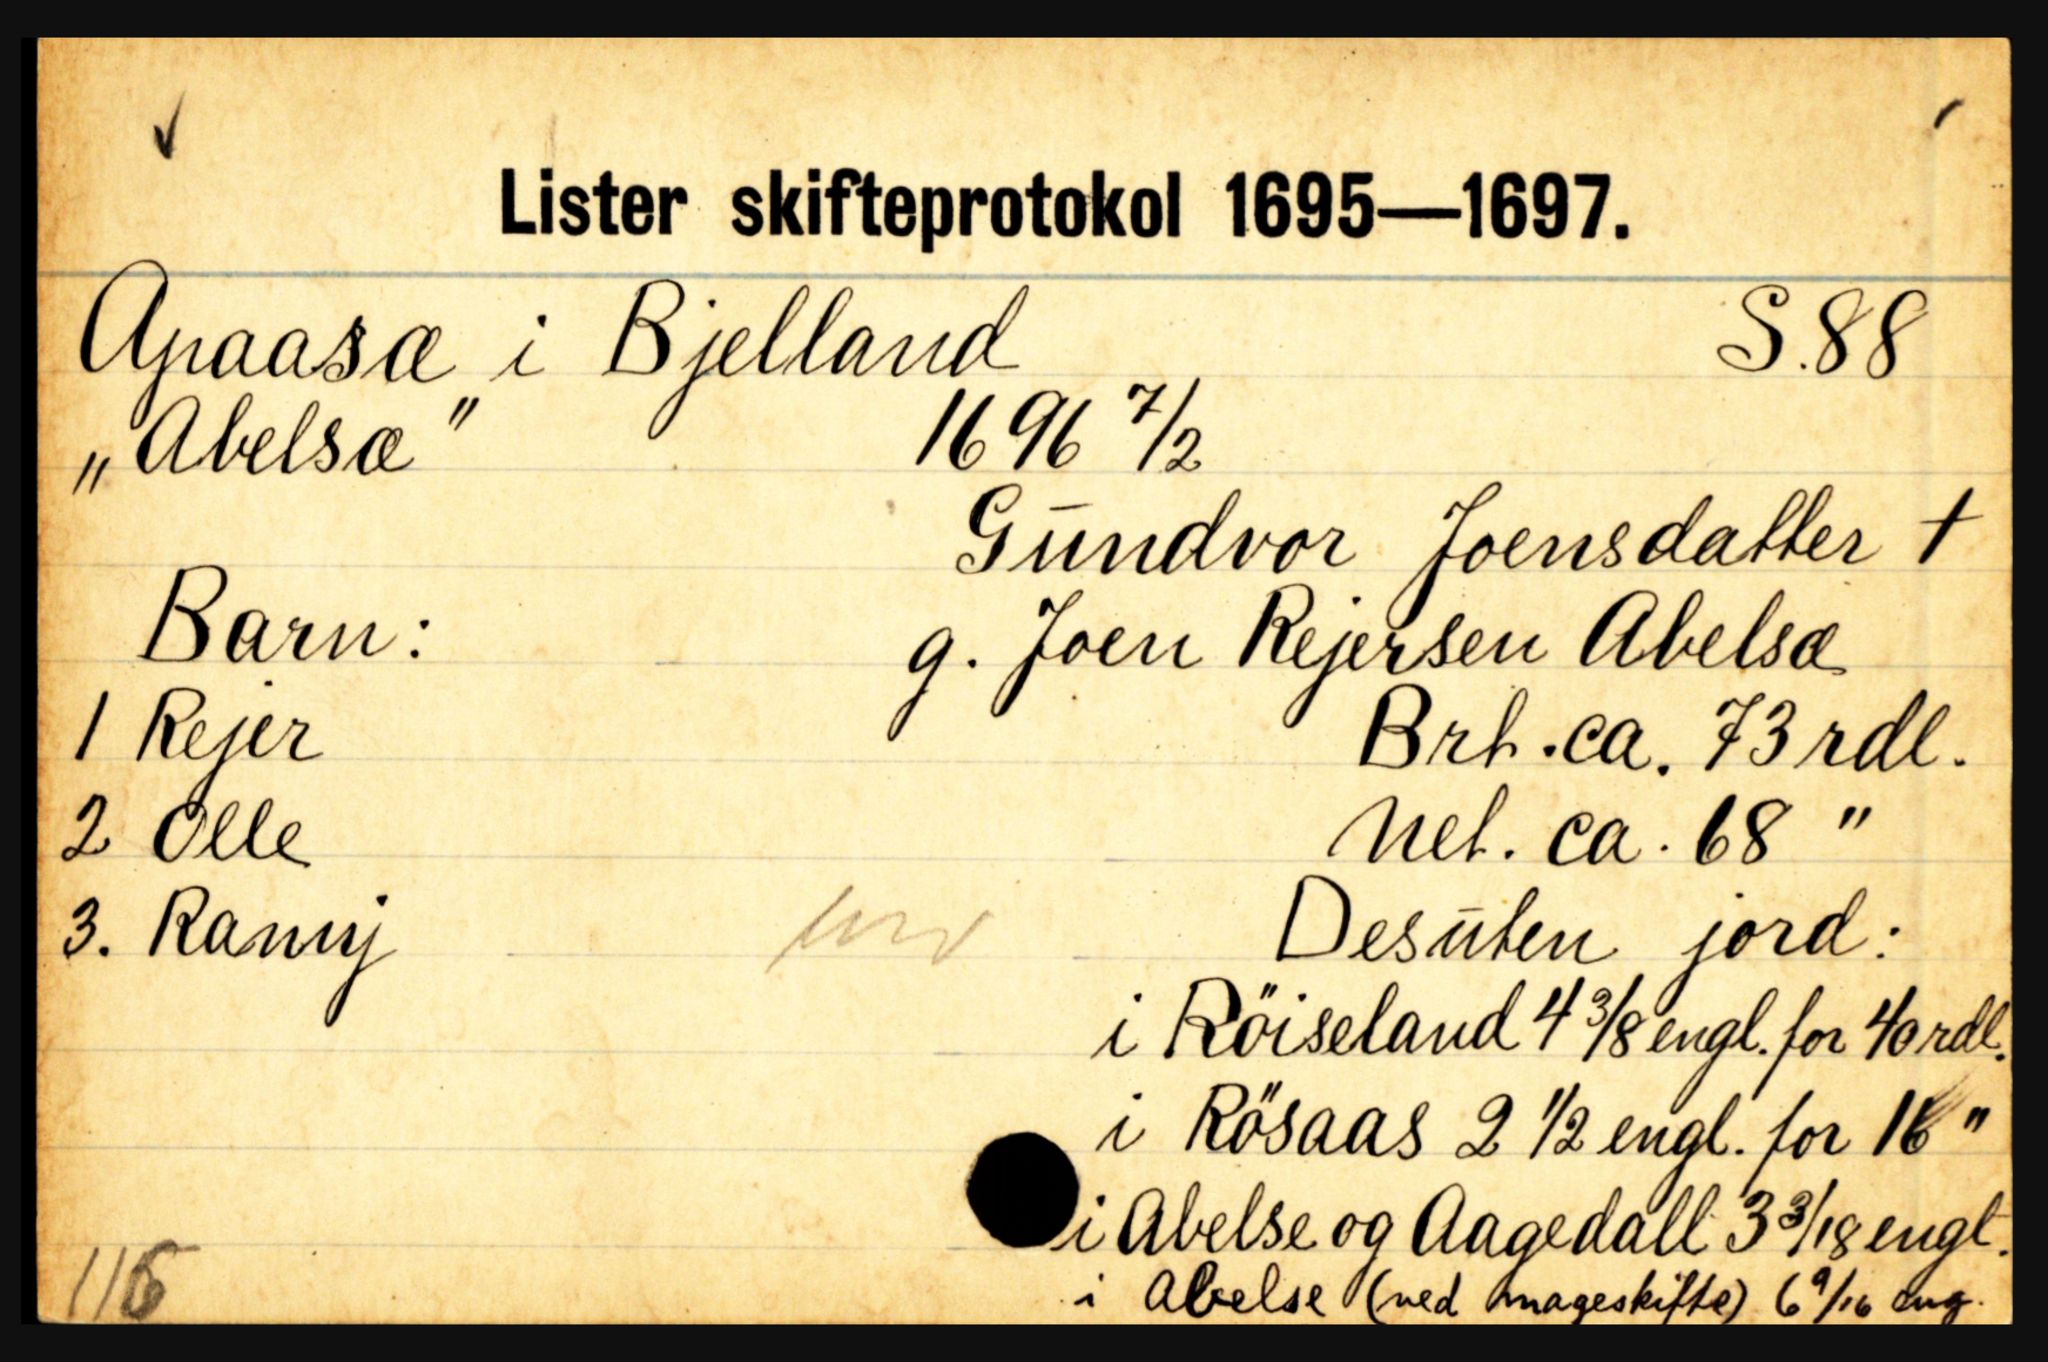 Lister skifteprotokol 1695—1697.
Apaasæ i Bjelland S. 88
„Abelsæ" 1696 7/2
Gundvor Joensdatter †
Barn: g. Joen Rejersen Abelsæ
1 Rejer Brt. ca. 73 rdl.
2 Olle Net. ca. 68 "
3. Rannj Desuten jord:
i Röiseland 4 3/8 engl. for 40 rdl.
i Rösaas 2 1/2 engl. for 16 "
i Abelse og Aagedall 3 3/18 engl.
i Abelse (ved mageskifte) 6 9/16 eng.
116